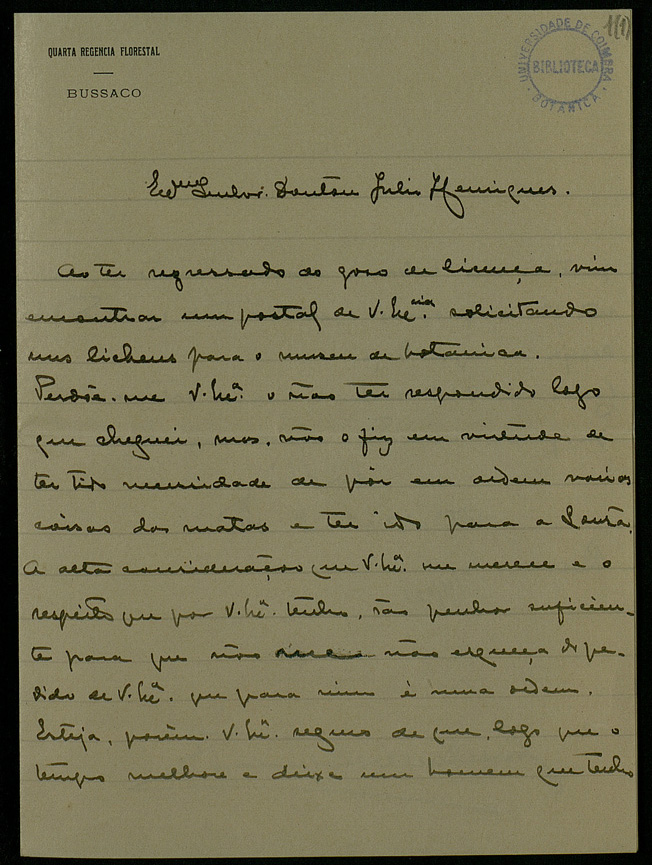 1(1)
UNIVERSIDADE DE COIMBRA
BIBLIOTECA
BOTANICA
QUARTA REGENCIA FLORESTAL
BUSSACO
Exᵐᵒ Senhor Doutor Julio Henriques.
Ao ter regressado do goso de licença, vim
encontrar um postal de V. Exᶜⁱᵃ. solicitando
uns lichens para o museu de botanica.
Perdôe-me V. Exᵃ o não ter respondido logo
que cheguei, mas, não o fiz em virtude de
ter tido necessidade de pôr em ordem varias
coisas das matas e ter ido para a Louzã.
A alta consideração que V. Exᵃ. me merece e o
respeito que por V. Exᵃ. tenho, são penhor suficien-
te para que não não esqueça o pe-
dido de V. Exᵃ. que para mim é uma ordem.
Esteja, porém, V. Exᵃ. seguro de que, logo que o
tempo melhore e deixe um homem que tenho